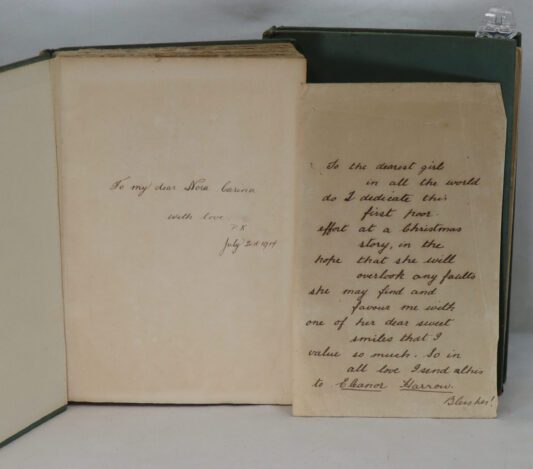 To my dear Nora Carina
with love
P.K
July 2nd 1914
To the dearest girl
in all the world
do I dedicate this
first poor
effort at a Christmas
story, in the
hope that she will
overlook any faults
she may find and
favour me with
one of her dear sweet
smiles that I
value so much. So in
all love I send
to Eleanor Harrow.
Bless her!